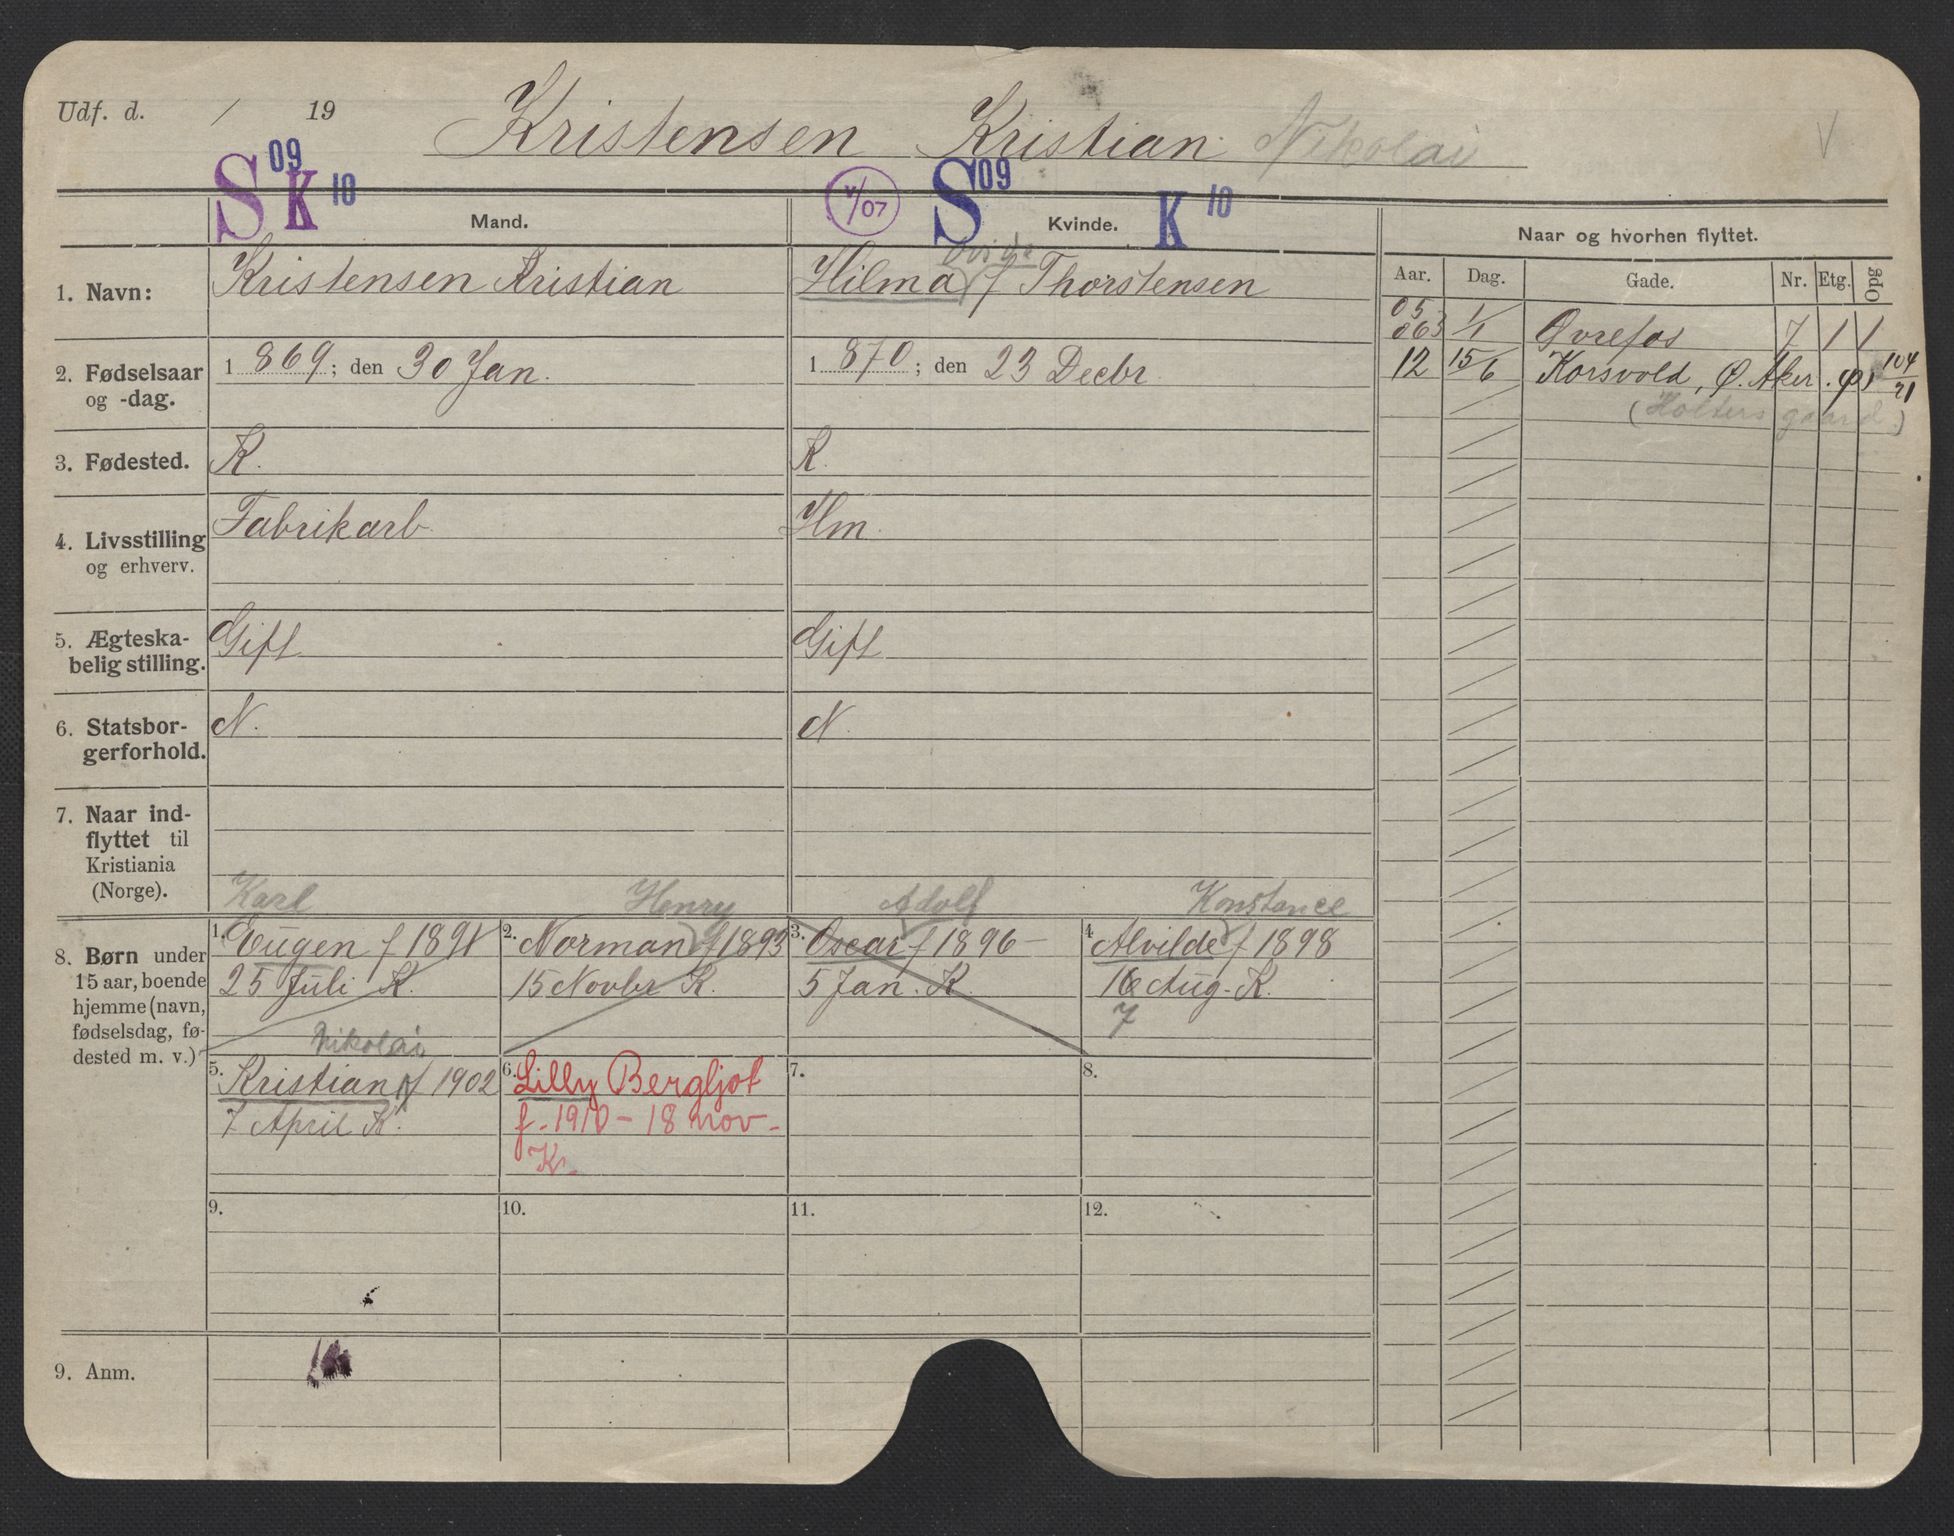 Udf. d. / 19 Kristensen Kristian Nikolai V
S 09 K 10 V/07 S 09 K 10
Mand. Kvinde. Naar og hvorhen flyttet.
Aar. Dag. Gade. Nr. Etg. Opg
1. Navn: Kristensen Kristian
Hilma f Thorstensen
05
063 1/1 Øvrefos 7 1 1
12 15/6 Korsvold, Ø. Aker. 104/21
(Holters gaard.)
2. Fødselsaar
og -dag.
1869; den 30 Jan.
1870; den 23 Decbr
3. Fødested. K. K.
4. Livsstilling
og erhverv.
Fabrikarb. Hm.
5. Ægteska-
belig stilling.
Gift Gift
6. Statsbor-
gerforhold.
N. N.
7. Naar ind-
flyttet til
Kristiania
(Norge).
8. Børn under
15 aar, boende
hjemme (navn,
fødselsdag, fø-
dested m. v.)
Karl
1. Eugen f 1891
25 Juli K.
Henry
2. Norman f 1893
15 Novbr K.
Adolf
3. Oscar f 1896 –
5 Jan. K.
Konstance
4 Alvilde f 1898
16 Aug. K.
7
Nikolai
5. Kristian f 1902
7 April K.
6. Lilly Bergljot
f. 1910 – 18 nov –
K.
7.
8.
9.
10.
11.
12.
9. Anm.